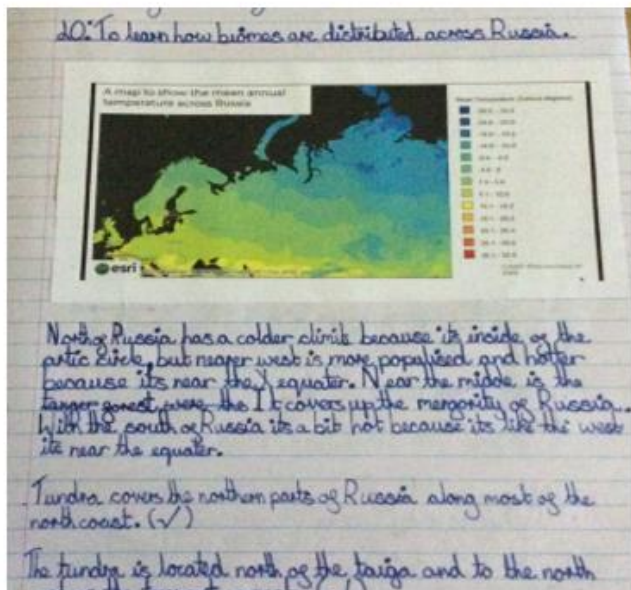 LO: To learn how biomes are distributed across Russia.
A map to show the mean annual
temperature across Russia
Mean Temperature (Celsius degrees)
esri
North of Russia has a colder climit because its inside of the
artic circle, but nearer west is more populised and hotter
because its near the equater. Near the middle is the
forest were the It covers up the mergority of Russia.
With the south of Russia its a bit hot because its like the west
its near the equater.
Tundra covers the northern parts of Russia along most of the
north coast. (✓)
The tundra is located north of the taiga and to the north